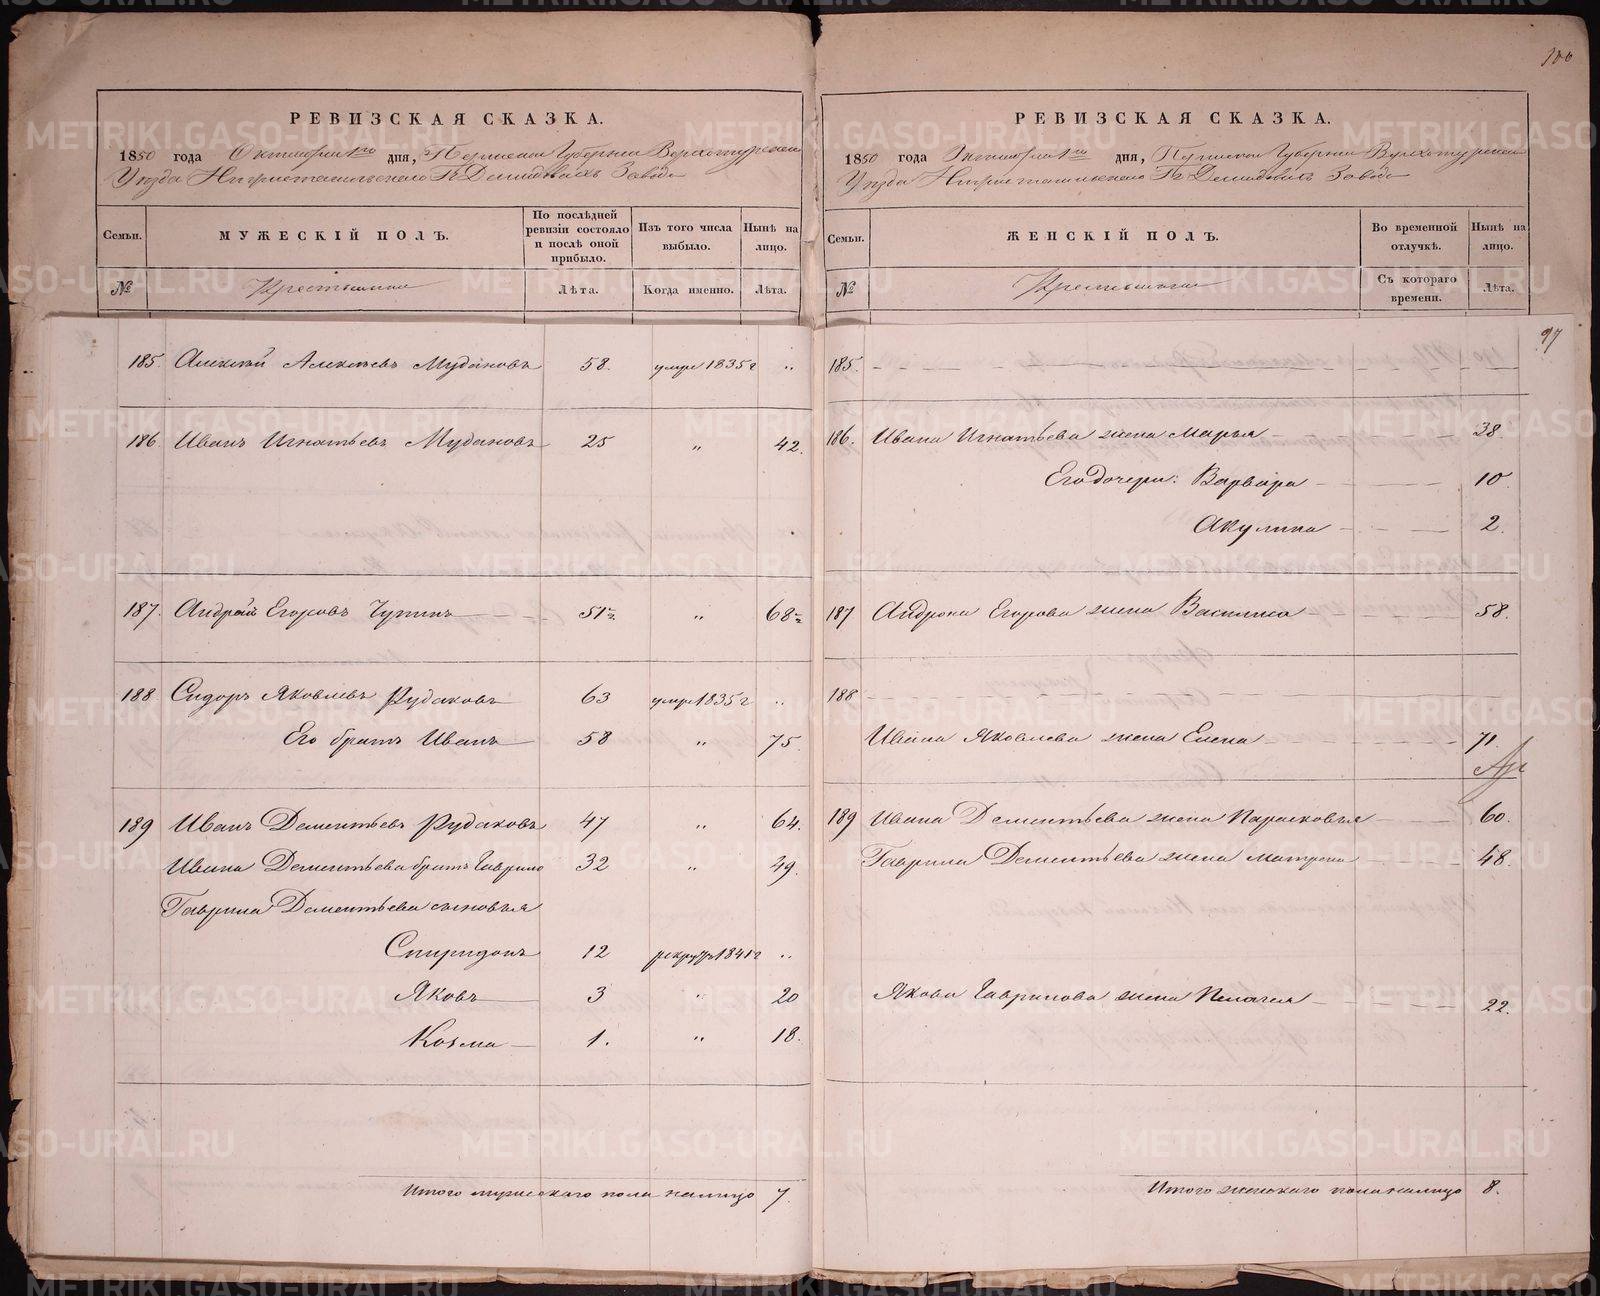 100
РЕВИЗСКАЯ СКАЗКА.
1850 года Октября 1го дня, Пермской Губернии Верхотурскаго
Уѣзда Нижнетагильскаго Гг Демидовыхъ Завода
Семьи. МУЖЕСКІЙ ПОЛЪ. По послѣдней ревизіи состояло и послѣ оной прибыло. Изъ того числа выбыло. Нынѣ на лицо.
№ Крестьяне Лѣта. Когда именно. Лѣта.
185. Алексѣй Алексѣевъ Мудановъ 58. умре 1835г "
186. Иванъ Игнатьевъ Мудановъ 25 " 42.
187. Андрей Егоровъ Чупинъ 51½ " 68½
188. Сидоръ Яковлевъ Рудаковъ 63 умре 1835г "
Его братъ Иванъ 58 " 75.
189 Иванъ Дементьевъ Рудаковъ 47 " 64.
Ивана Дементьева братъ Гаврило 32 " 49.
Гаврила Дементьева сыновья
Спиридонъ 12 рекрутъ 1841г "
Яковъ 3 " 20
Козма 1. " 18.
Итого мужескаго пола налицо 7.
РЕВИЗСКАЯ СКАЗКА.
1850 года Октября 1го дня, Пермской Губернии Верхотурскаго
Уѣзда Нижнетагильскаго Гг Демидовыхъ Завода
Семьи. ЖЕНСКІЙ ПОЛЪ. Во временной отлучкѣ. Нынѣ на лицо.
№ Крестьянки Съ котораго времени. Лѣта.
97
185.
186. Ивана Игнатьева жена Марья 38.
Его дочери: Варвара 10
Акулина 2.
187 Андрона Егорова жена Василиса 58.
188
Ивана Яковлева жена Елена 71.
189 Ивана Дементьева жена Парасковья 60.
Гаврила Дементьева жена Матрена 48.
Якова Гаврилова жена Пелагея 22.
Итого женскаго пола налицо 8.
METRIKI.GASO-URAL.RU